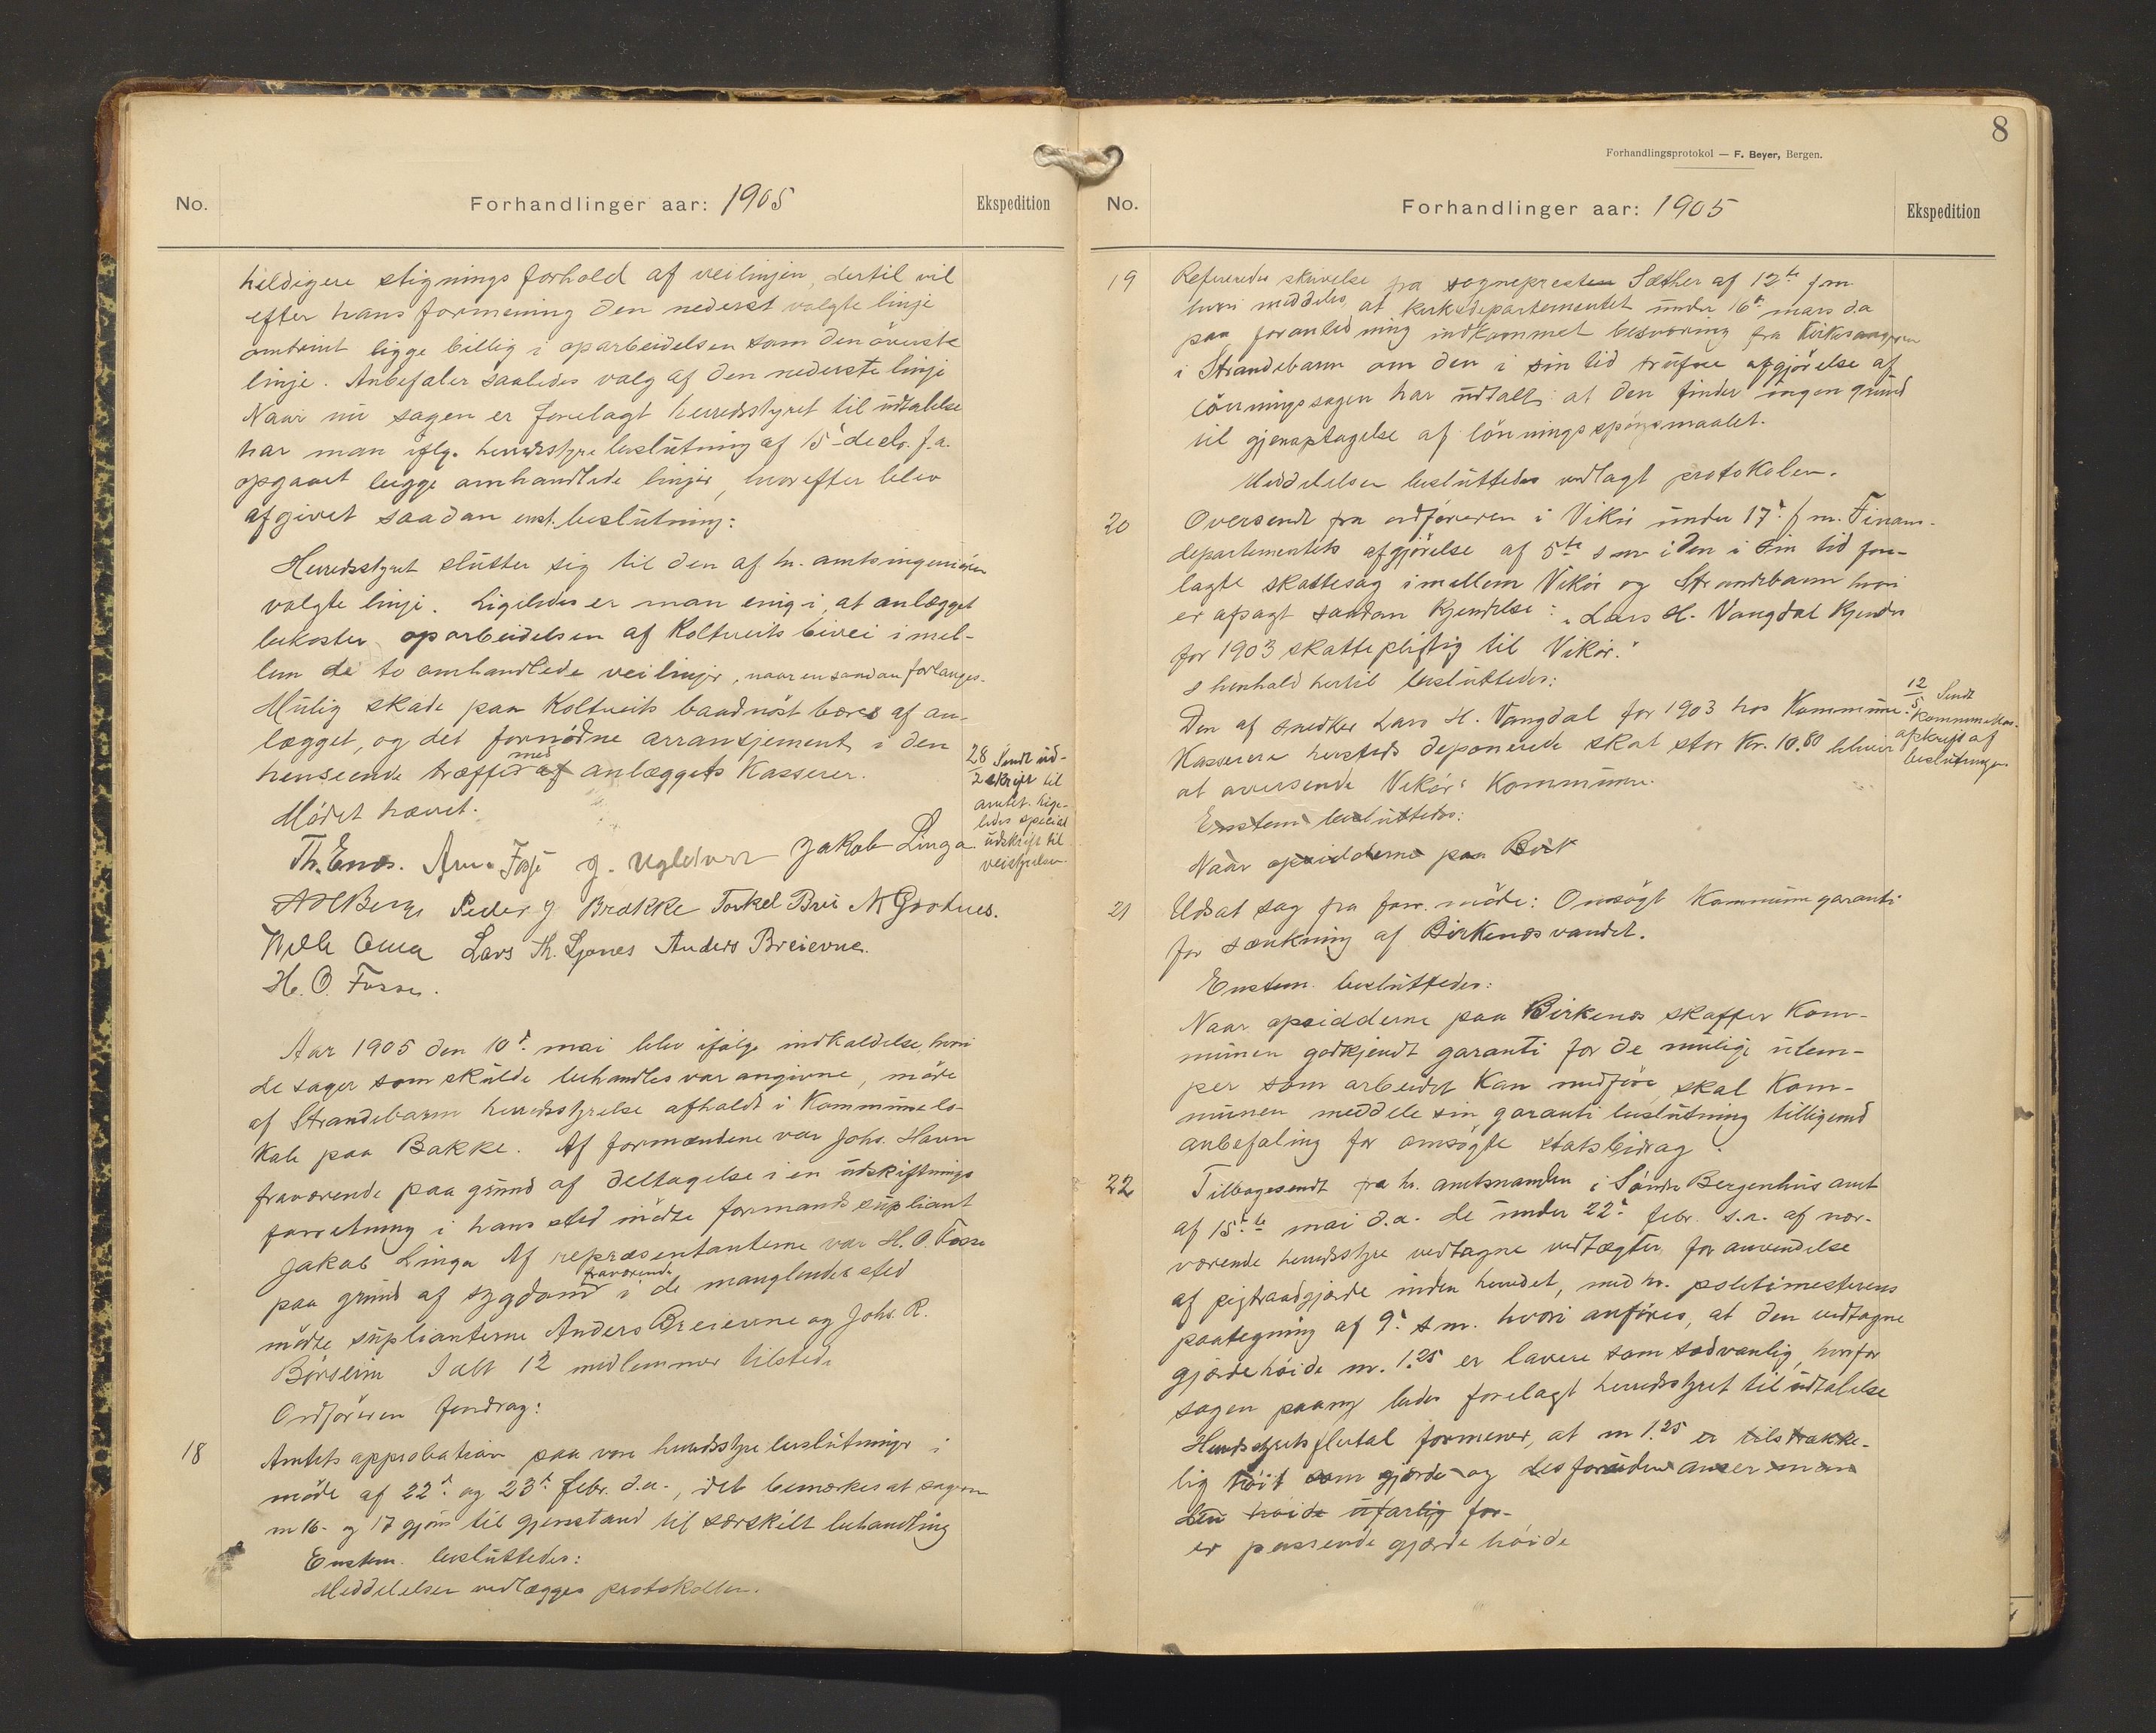 No.
Forhandlinger aar: 1905
Ekspedition
heldigere stignings forhold af veilinjen, dertil vil
efter hans formening den nederst valgte linje
omtrint ligge billig i oparbeidelsen som den överste
linje. Anbefaler saaledes valg af den nederste linje
Naar nu sagen er forelagt herredsstyret til udtalelse
har man iflg. herredsstyre beslutning af 15' decbr. f.a.
opgaaet begge omhandlede linjer, hvorefter blev
afgivet saadan enst. beslutning:
Herredsstyret slutter sig til den af hr. amtsingeniören
valgte linje. Ligeledes er man enig i, at anlægget
bekoster oparbeidelsen af Koltveits bivei imel-
lem de to omhandlede veilinjer, naar en saadan forlanges.
Mulig skade paa Koltveits baadnöst bæres af an-
lægget, og det fornödne arransjement i den
henseende træffes af med anlæggets Kasserer.
Mödet hævet.
28/2 Sendt ud-
skrift til
amtet. Lige-
ledes special
udskrift til
veistyrelsen.
Th. Enes. Arne Fosse J. Jakob Linga
Peder J Brakke Torkel Brei N Grotnes.
Lars Th. Ljones Anders Breievne.
H. O. Fosse.
Aar 1905 den 10de mai blev ifølge indkaldelse, hvori
de sager som skulde behandles var angivne, möde
af Strandebarm herredsstyrelse afholdt i Kommunelo-
kale paa Bakke. Af formændene var Johs. Havn
fraværende paa grund af deltagelse i en udskiftnings
forretning i hans sted mödte formands supliant
Jakob Linga Af repræsentanterne var H. O. Fosse
paa grund af sygdom fraværende i de manglendes sted
mödte suplianterne Anders Breievne og Johs. R.
Börsheim Ialt 12 medlemmer tilstede
Ordföreren foredrag:
18
Amtets approbation paa vore herredsstyrebeslutninger i
möde af 22de og 23de febr. d.a., det bemærkes at sagerne
nr 16 og 17 gjöres til gjenstand til særskilt behandling
Enstem. besluttedes:
Meddelelsen vedlægges protokollen.
8
Forhandlingsprotokol — F. Beyer, Bergen.
No.
Forhandlinger aar: 1905
Ekspedition
19
Refereredes skrivelse fra sogneprest Sæther af 12te f.m.
hvori meddeles, at Kirkedepartementet under 16de mars d.a
paa foranledning indkommet besværing fra Kirkesangeren
i Strandebarm om den i sin tid trufne afgjörelse af
lönningssagen har udtalt, at den finder ingen grund
til gjenoptagelse af lönningsspörgsmaalet.
Meddelelsen besluttedes vedlagt protokolen.
20
Oversendt fra ordföreren i Vikör under 17de f.m. Finans-
departementets afgjörelse af 5te s.m. i den i sin tid fore-
lagte skattesag imellem Vikör og Strandebarm hvori
er afsagt saadan Kjendelse: „Lars H. Vangdal kjendes
for 1903 skattepligtig til Vikör."
I henhold hertil besluttedes:
Den af snedker Lars H. Vangdal for 1903 hos Kommune-
Kassereren hersteds deponerede skat stor Kr. 10.80 bliver
at oversende Vikör's Kommune.
12/5 Sendt
kommunekas.
afskrift af
beslutningen.
Enstem. besluttedes:
Naar opsidderne paa Birk
21
Udsat sag fra forr. möde: Omsögt Kommunegaranti
for sænkning af Birkenes vandet.
Enstem. besluttedes:
Naar opsidderne paa Birkenes skaffer Kom-
munen godkjendt garanti for de mulige ulem-
per som arbeidet kan medföre, skal Kom-
munen meddele sin garanti beslutning tilligemed
anbefaling for omsögte statsbidrag.
22
Tilbagesendt fra hr. amtmanden i Söndre Bergenhus amt
af 15de mai d.a. de under 22de febr. s.a. af nær-
værende herredsstyre vedtagne vedtægter for anvendelse
af pigtraadgjærde inden herredet, med hr. politimesterens
paategning af 9de s.m. hvori anföres, at den vedtagne
gjærdehöide m. 1.25 er lavere som sædvanlig, hvorfor
sagen paany bedes forelagt herredsstyret til udtalelse
Herredsstyrets flertal formener, at m 1.25 er tilstrække-
lig höit som gjærde og desforuden anser man
den höide ufarlig for-
er passende gjærde höide